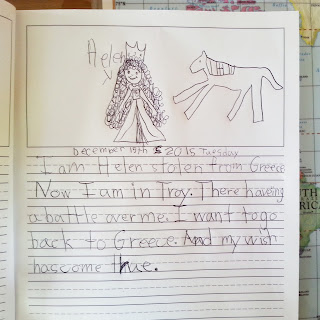 Helen
December 15th 2015 Tuesday
I am Helen stolen from Greece
Now I am in Troy. There haveing
a battle over me. I want to go
back to Greece. And my wish
has come true.